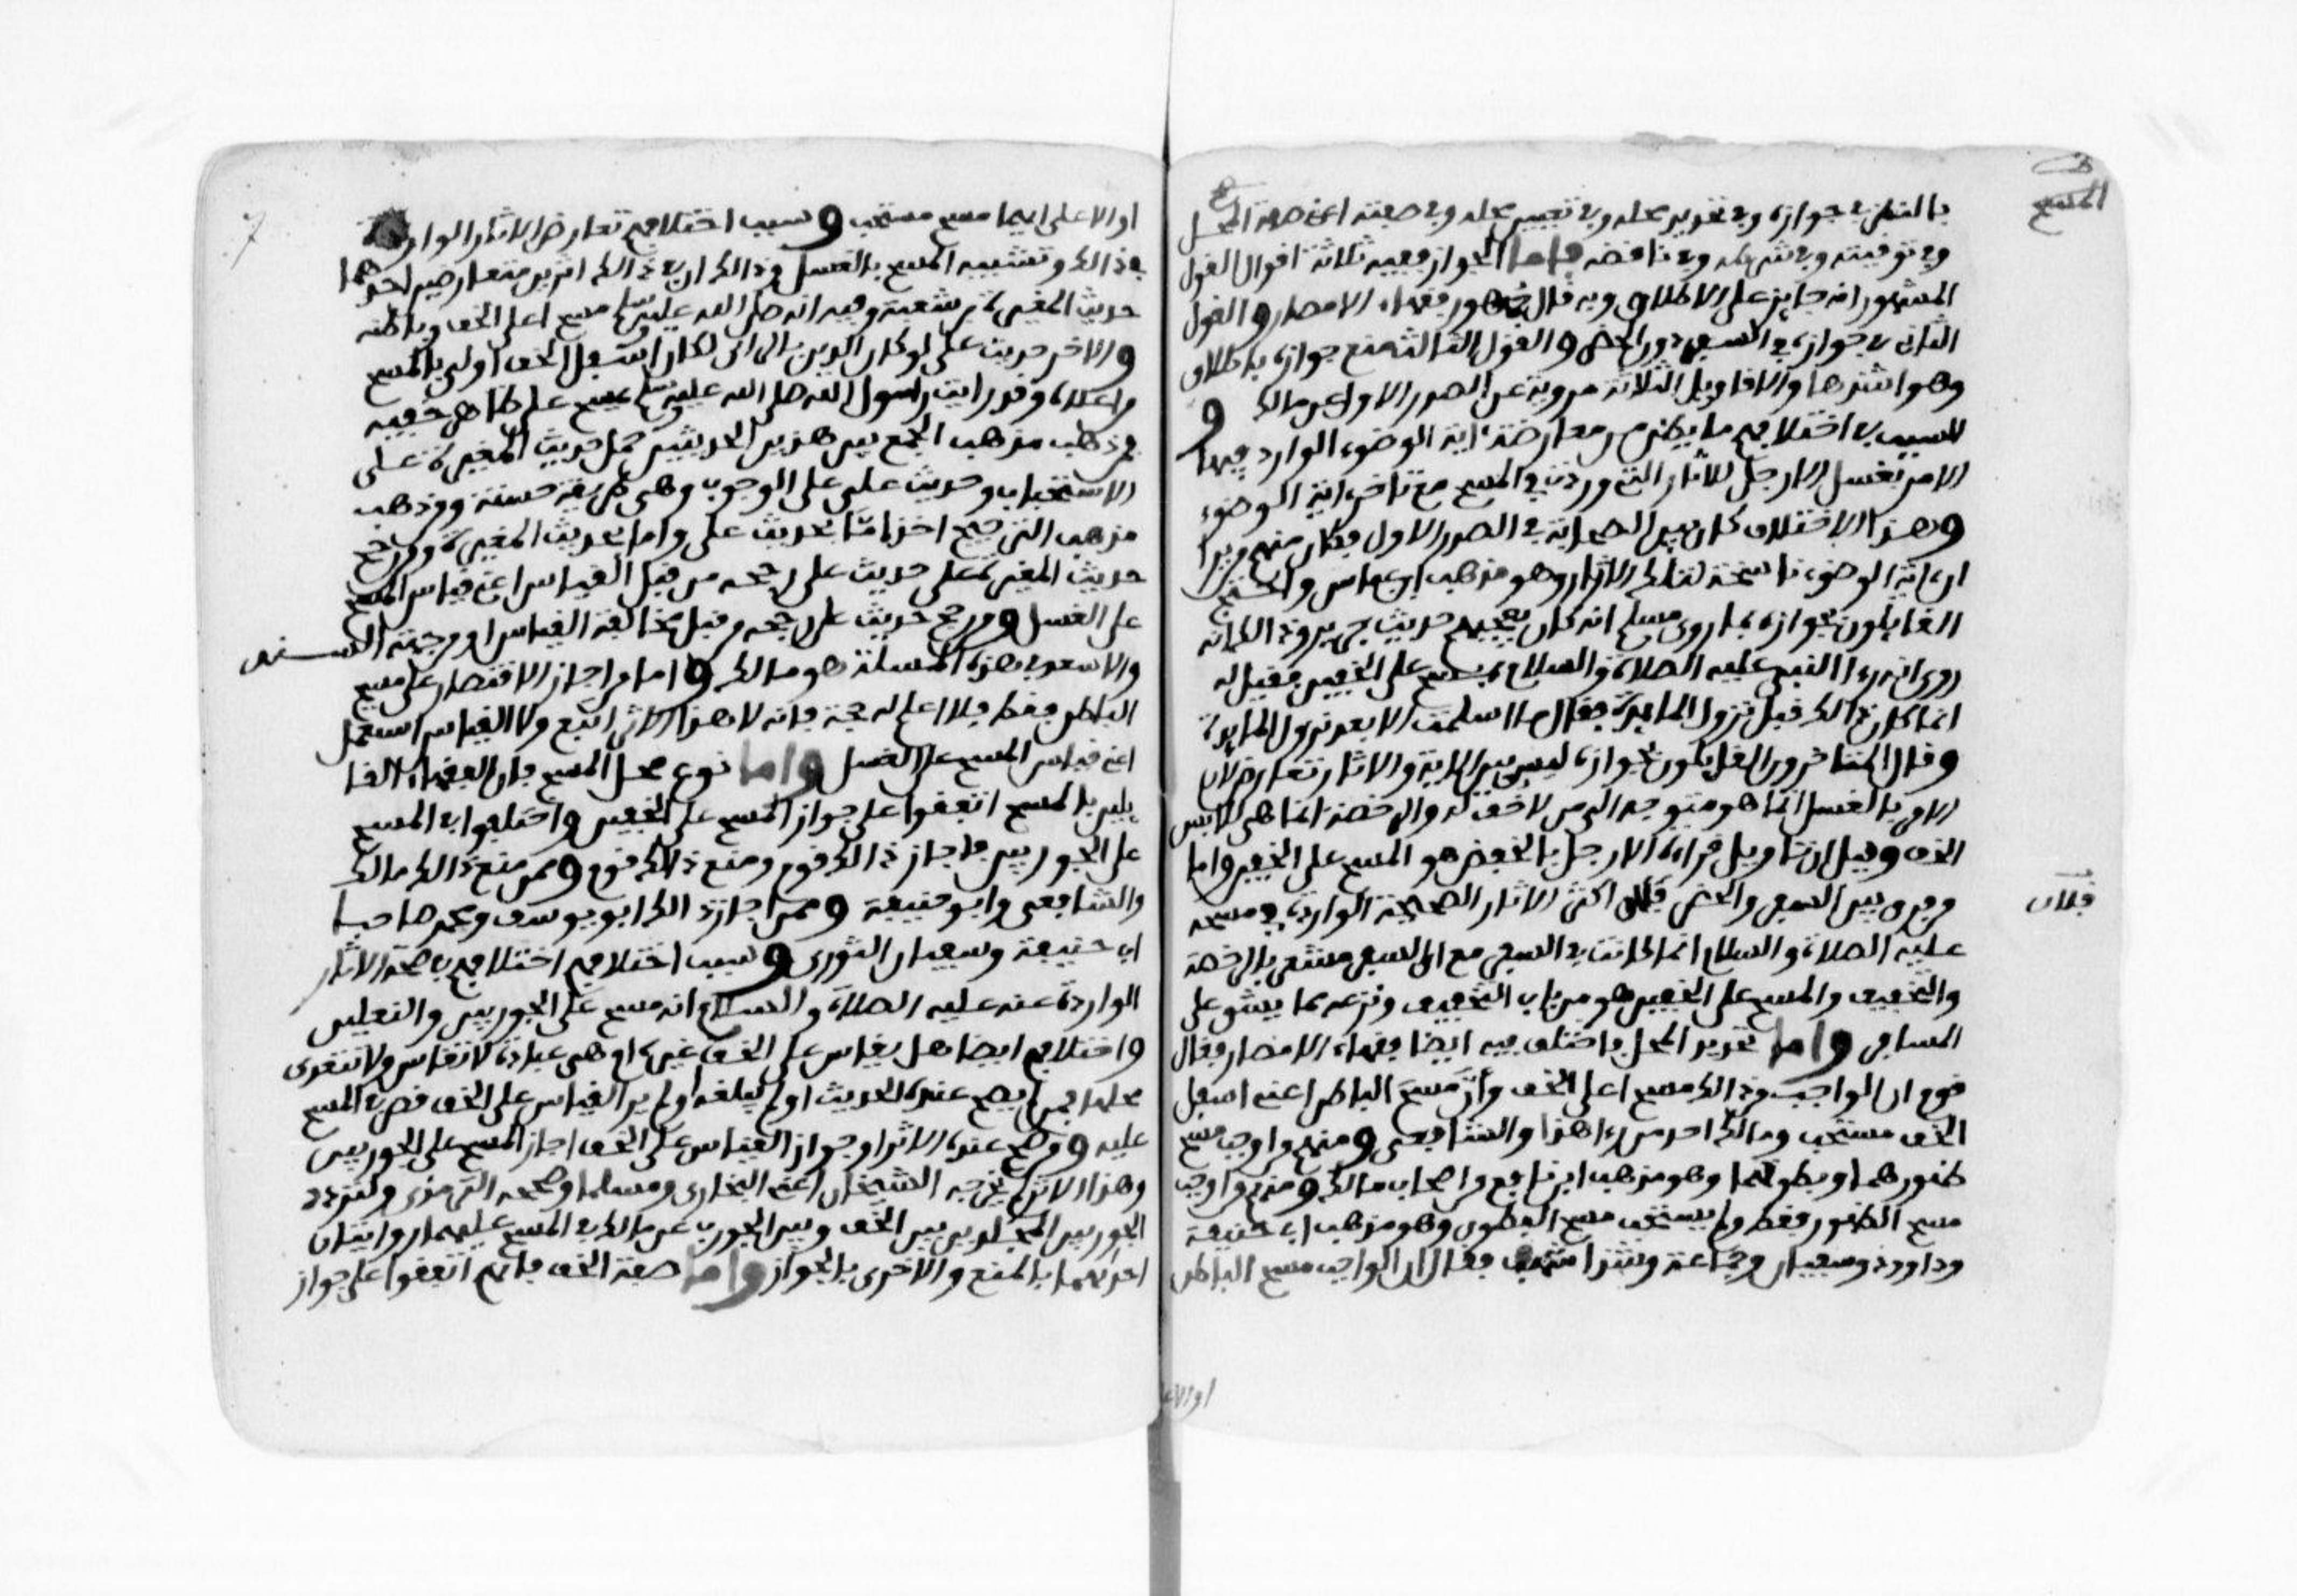 المسح
بالنظر في جوازه وفي تحديد محله وفي تعيين محله وفي صفته اعني صفة المحل
وفي توقيته وفي شروطه وفي نواقضه فاما الجواز ففيه ثلاثة اقوال القول
المشهور انه جايز على الاطلاق وبه قال جمهور فقهاء الامصار والقول
الثاني جوازه في السفر دون الحضر والقول الثالث منع جوازه باطلاق
وهو اشدها والاقاويل الثلاثة مروية عن الصدر الاول وعن مالك و
السبب في اختلافهم ما يظن من معارضة ءاية الوضوء الوارد فيها
الامر بغسل الارجل للاثار التي وردت في المسح مع تاخر ءاية الوضوء
وهذا الاختلاف كان بين الصحابة في الصدر الاول فكان منهم من يرا
ان ءاية الوضوء ناسخة لتلك الاثار وهو مذهب ابن عباس واحتج
القايلون بجوازه بما روى مسلم انه كان يعجبهم حديث جرير وذالك انه
روى انه رءا النبي عليه الصلاة والسلام يمسح على الخفين فقيل له
انما كان ذالك قبل نزول المايدة فقال ما اسلمت الا بعد نزول المايدة
وقال المتاخرون القايلون بجوازه ليس بين الاية والاثار تعارض لان
الامر بالغسل انما هو متوجه الى من لا خف له والرخصة انما هي للابس
الخف وقيل ان تاويل قراءة الارجل بالخفض هو المسح على الخفين واما
من فرق بين السفر والحضر فلان اكثر الاثار الصحيحة الواردة في مسحه
فلان
عليه الصلاة والسلام انما كانت في السفر مع ان السفر مشعر بالرخصة
والتخفيف والمسح على الخفين هو من باب التخفيف ونزعه مما يشق على
المسافر واما تحديد المحل فاختلف فيه ايضا فقهاء الامصار فقال
قوم ان الواجب من ذالك مسح اعلى الخف وأن مسح الباطن اعني اسفل
الخف مستحب ومالك احد من رءا هذا والشافعي ومنهم من اوجب مسح
ظهورهما وبطونهما وهو مذهب ابن نافع من اصحاب مالك ومنهم من اوجب
مسح الظهور فقط ولم يستحب مسح البطون وهو مذهب ابي حنيفة
وداوود وسفيان وجماعة وشذ اشهب فقال ان الواجب مسح الباطن
او الاعلى
او الاعلى ايهما مسح مستحب وسبب اختلافهم تعارض الاثار الواردة
في ذالك وتشبيه المسح بالغسل وذالك ان في ذالك اثرين متعارضين احدهما
حديث المغيرة بن شعبة وفيه انه صلى الله عليه وسلم مسح اعلى الخف وباطنه
والاخر حديث علي لو كان الدين بالراى لكان اسفل الخف اولى بالمسح
من اعلاه وقد رايت رسول الله صلى الله عليه وسلم يمسح على ظاهر خفيه
فمن ذهب مذهب الجمع بين هذين الحديثين حمل حديث المغيرة على
الاستحباب وحديث علي على الوجوب وهي طريقة حسنة ومن ذهب
مذهب الترجيح اخذ اما بحديث علي واما بحديث المغيرة فمن رجح
حديث المغيرة على حديث علي رجحه من قبل القياس اعني قياس المسح
على الغسل ومن رجح حديث علي رجحه من قبل مخالفة القياس او من جهة السند
والاسعد في هذه المسئلة هو مالك واما من اجاز الاقتصار على مسح
الباطن فقط فلا اعلم له حجة فانه لا هذا الاثر اتبع ولا القياس استعمل
اعني قياس المسح على الغسل واما نوع محل المسح فان الفقهاء القا
يلين بالمسح اتفقوا على جواز المسح على الخفين واختلفوا في المسح
على الجوربين فاجاز ذالك قوم ومنع ذالك قوم وممن منع ذالك مالك
والشافعي وابو حنيفة وممن اجاز ذالك ابو يوسف ومحمد صاحبا
ابي حنيفة وسفيان الثوري وسبب اختلافهم اختلافهم في صحة الاثار
الواردة عنه عليه الصلاة والسلام انه مسح على الجوربين والنعلين
واختلافهم ايضا هل يقاس على الخف غيره ام هي عبادة لا تقاس ولا تتعدى
محلها فمن لم يصح عنده الحديث او لم يبلغه او لم ير القياس على الخف قصر المسح
عليه ومن صح عنده الاثر او جواز القياس على الخف اجاز المسح على الجوربين
وهذا الاثر لم يخرجه الشيخان اعني البخاري ومسلما وصححه الترمذي ولتردد
الجوربين المجلدين بين الخف وبين الجورب عن مالك في المسح عليهما روايتان
احداهما بالمنع والاخرى بالجواز واما صفة الخف فانهم اتفقوا على جواز